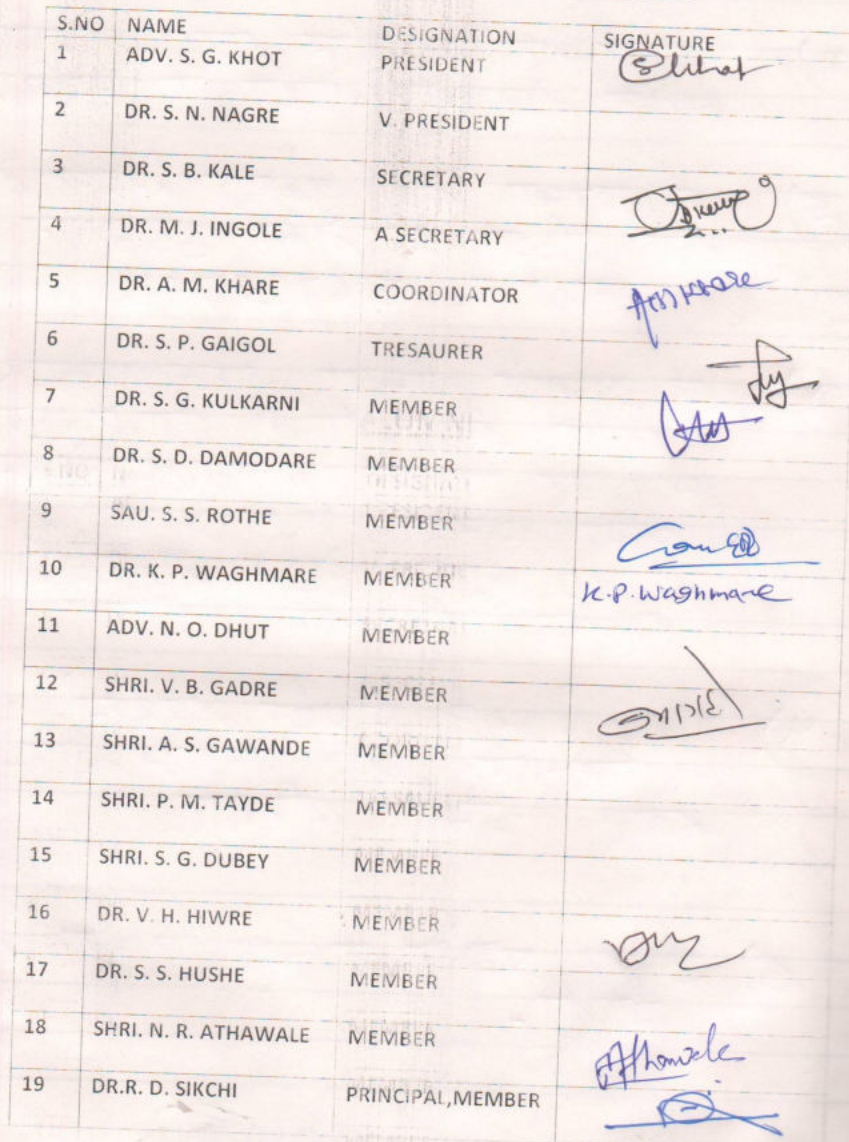 S.NO NAME DESIGNATION SIGNATURE
1 ADV. S. G. KHOT PRESIDENT
2 DR. S. N. NAGRE V. PRESIDENT
3 DR. S. B. KALE SECRETARY
4 DR. M. J. INGOLE A SECRETARY
5 DR. A. M. KHARE COORDINATOR AMKhare
6 DR. S. P. GAIGOL TRESAURER
7 DR. S. G. KULKARNI MEMBER
8 DR. S. D. DAMODARE MEMBER
9 SAU. S. S. ROTHE MEMBER
10 DR. K. P. WAGHMARE MEMBER K.P. Waghmare
11 ADV. N. O. DHUT MEMBER
12 SHRI. V. B. GADRE MEMBER
13 SHRI. A. S. GAWANDE MEMBER
14 SHRI. P. M. TAYDE MEMBER
15 SHRI. S. G. DUBEY MEMBER
16 DR. V. H. HIWRE MEMBER
17 DR. S. S. HUSHE MEMBER
18 SHRI. N. R. ATHAWALE MEMBER
19 DR.R. D. SIKCHI PRINCIPAL,MEMBER